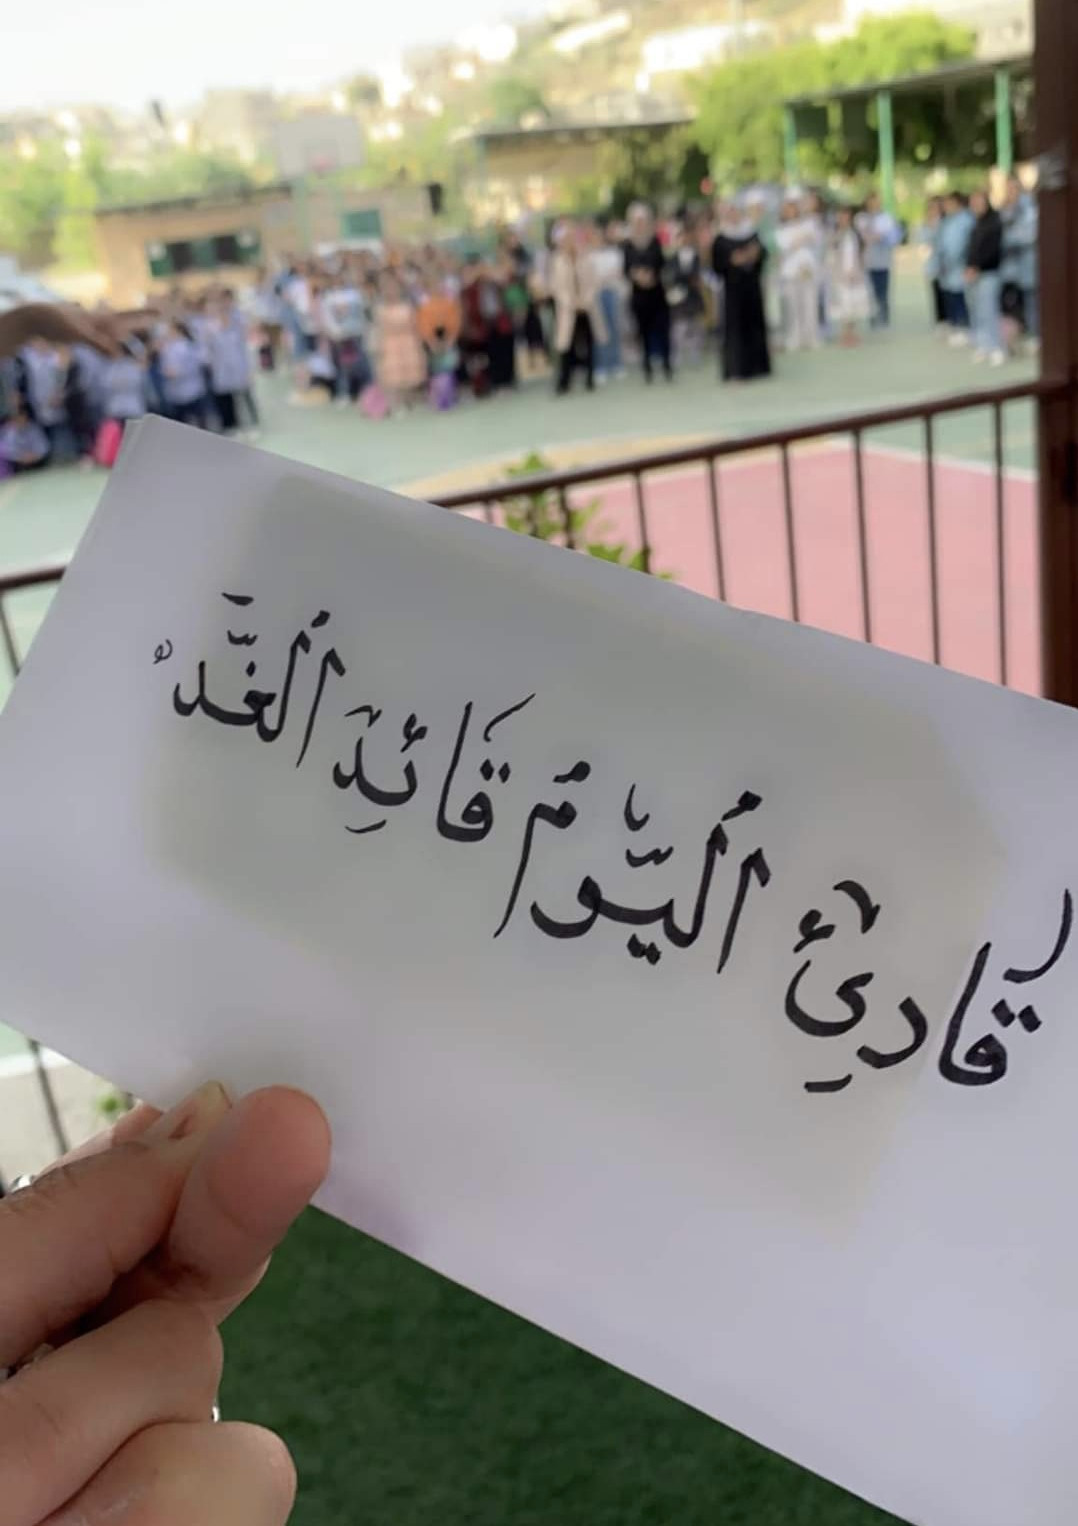 قَارِئُ اُلْيَّوْمُ قَائِدُ اُلغَّد